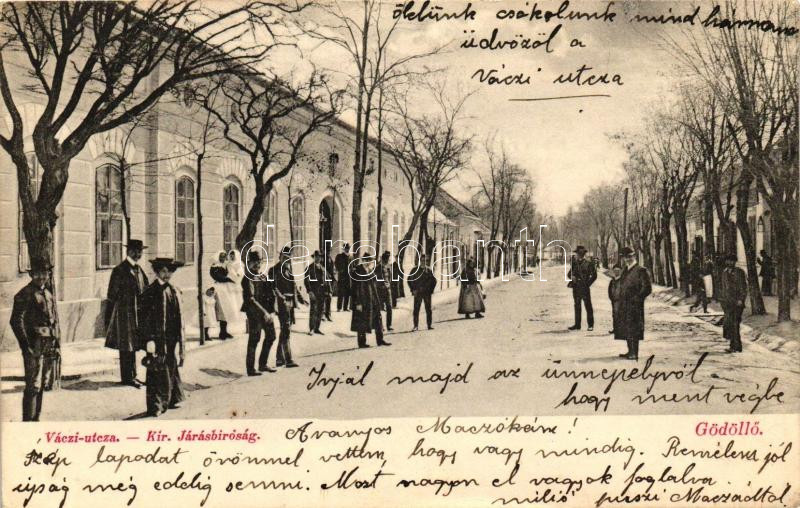 ölelünk csókolunk mind hárman
üdvözöl a
Váczi utcza
darabanth
Irjál majd az ünnepelyröl
hogy ment végbe
Váczi-utcza. — Kir. Járásbiróság.
Gödöllő.
Aranyos Maczókám!
szép lapodat örömmel vettem, hogy vagy mindig. Remélem jól
ujság még eddig semmi. Most nagyon el vagyok foglalva.
millió puszi Maczádtól